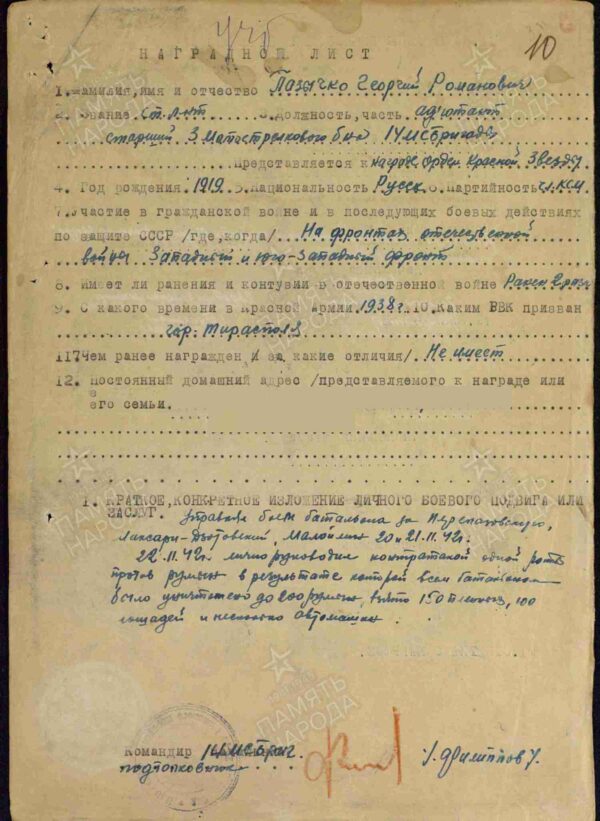 учб
10
НАГРАДНОЙ ЛИСТ
1. Фамилия, имя и отчество Пазычко Георгий Романович
2. Звание ст. л-нт 3. Должность, часть. адъютант
старший 3 мотострелкового б-на 14 МСБригады
Представляется к награде орден Красной Звезды
4. Год рождения 1919 5. Национальность Русск 6. Партийность
7. Участие в гражданской войне и в последующих боевых действиях
по защите СССР /где, когда/ На фронтах отечественной
войны Западный и юго-Западный фронт
8. Имеет ли ранения и контузии в отечественной войне Ранен 2 раза
9. С какого времени в Красной Армии 1938 г. 10. Каким ВВК призван
гор. Тирасполя
11. Чем ранее награжден /и за какие отличия/. Не имеет
12. Постоянный домашний адрес /представляемого к награде или
его семьи.
1. КРАТКОЕ, КОНКРЕТНОЕ ИЗЛОЖЕНИЕ ЛИЧНОГО БОЕВОГО ПОДВИГА ИЛИ
ЗАСЛУГ. Управлял боем батальона за
20 и 21.11.42 г.
22.11.42 г. лично руководил контратакой одной роты
против румын в результате которой всем батальоном
было уничтожено до 200 румын, взято 150 пленных, 100
лошадей и несколько автомашин.
Командир 14 МСБриг.
подполковник
/Филиппов/
ПАМЯТЬ НАРОДА